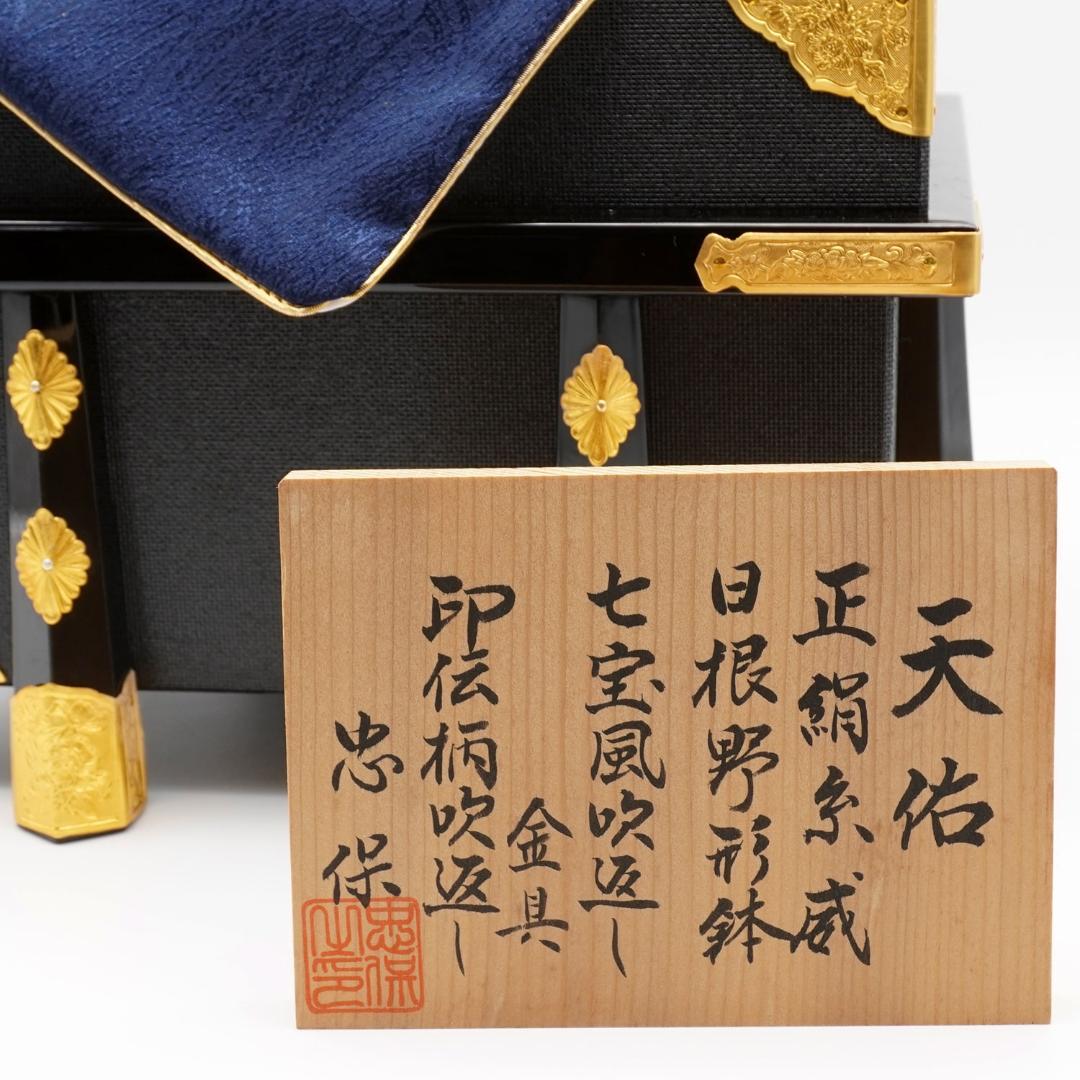 天佑
正絹糸威
日根野形鉢
七宝風吹返し
金具
印伝柄吹返し
忠保
忠保之印